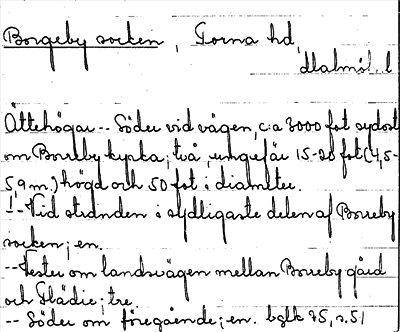 Borgeby socken, Torna hd,
Malmöh. l
Ättehögar -- Söder vid vägen, c:a 3000 fot sydost
om Borreby kyrka; två, ungefär 15-20 fot (4,5-
5,9 m.) högd och 50 fot i diameter.
!-- Vid stranden i sydligaste delen af Borreby
socken; en.
-- Vester om landsvägen mellan Borreby gård
och Flädie; tre.
-- Söder om föregående; en. bglk 75, s. 51